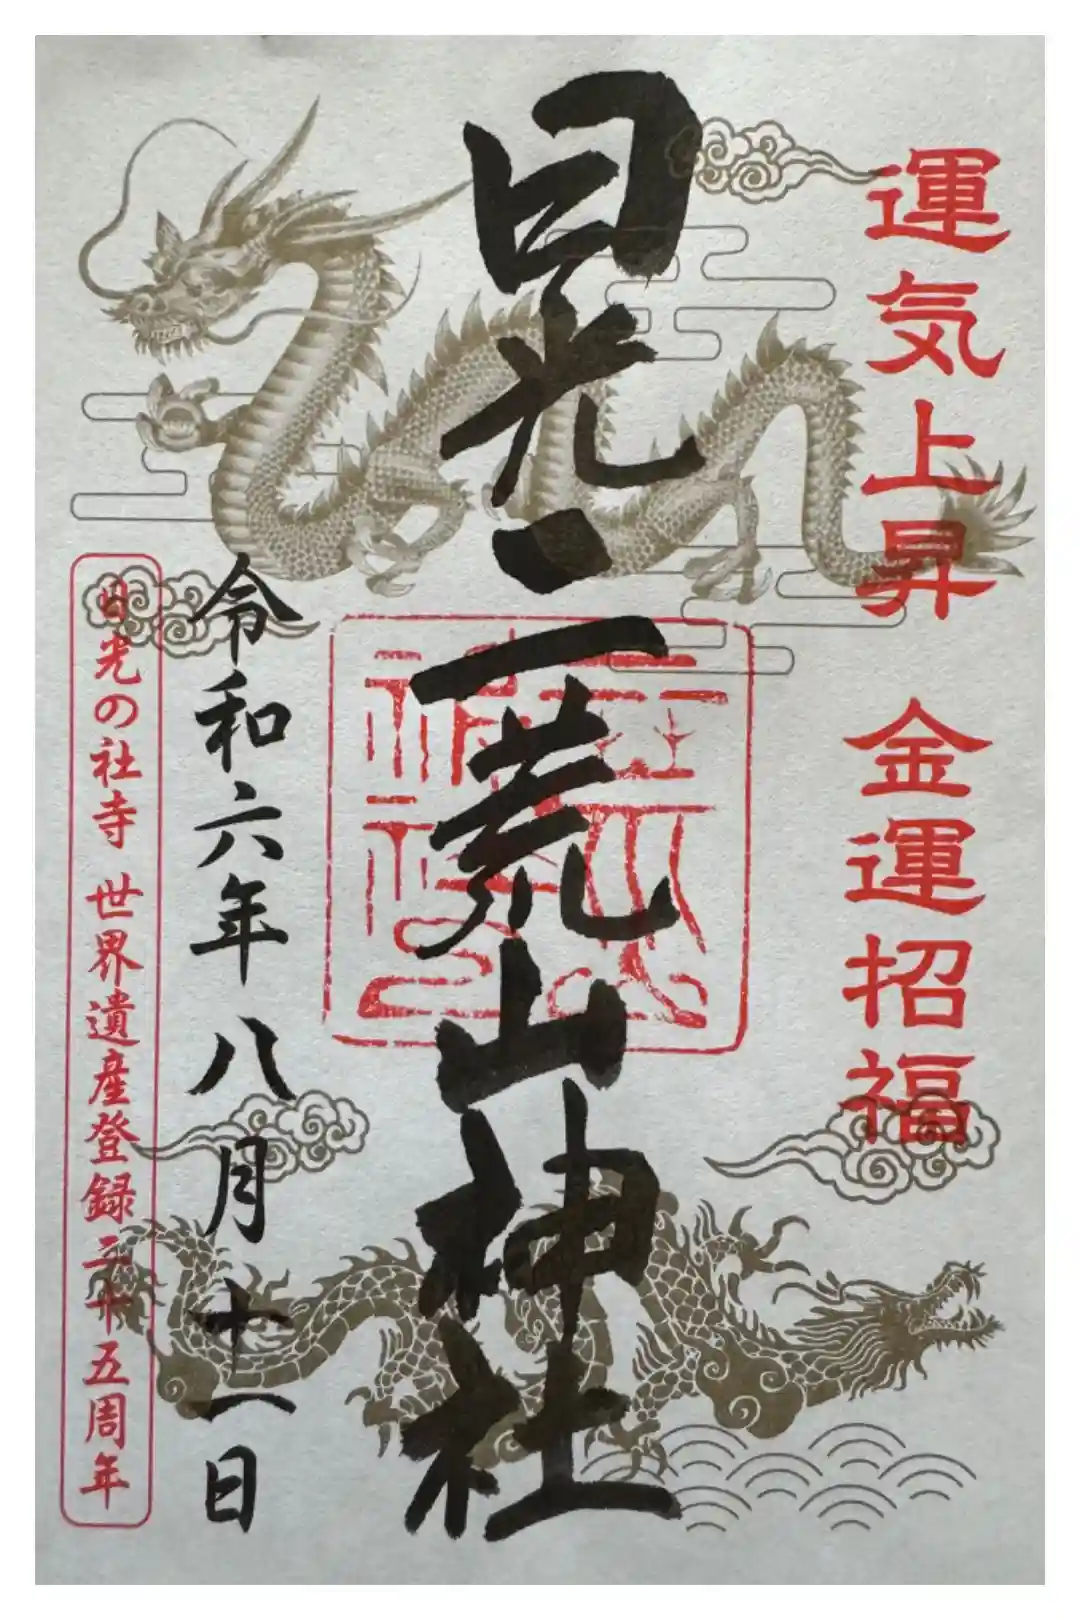 運気上昇 金運招福
日光二荒山神社
令和六年八月十一日
日光の社寺 世界遺産登録二十五周年